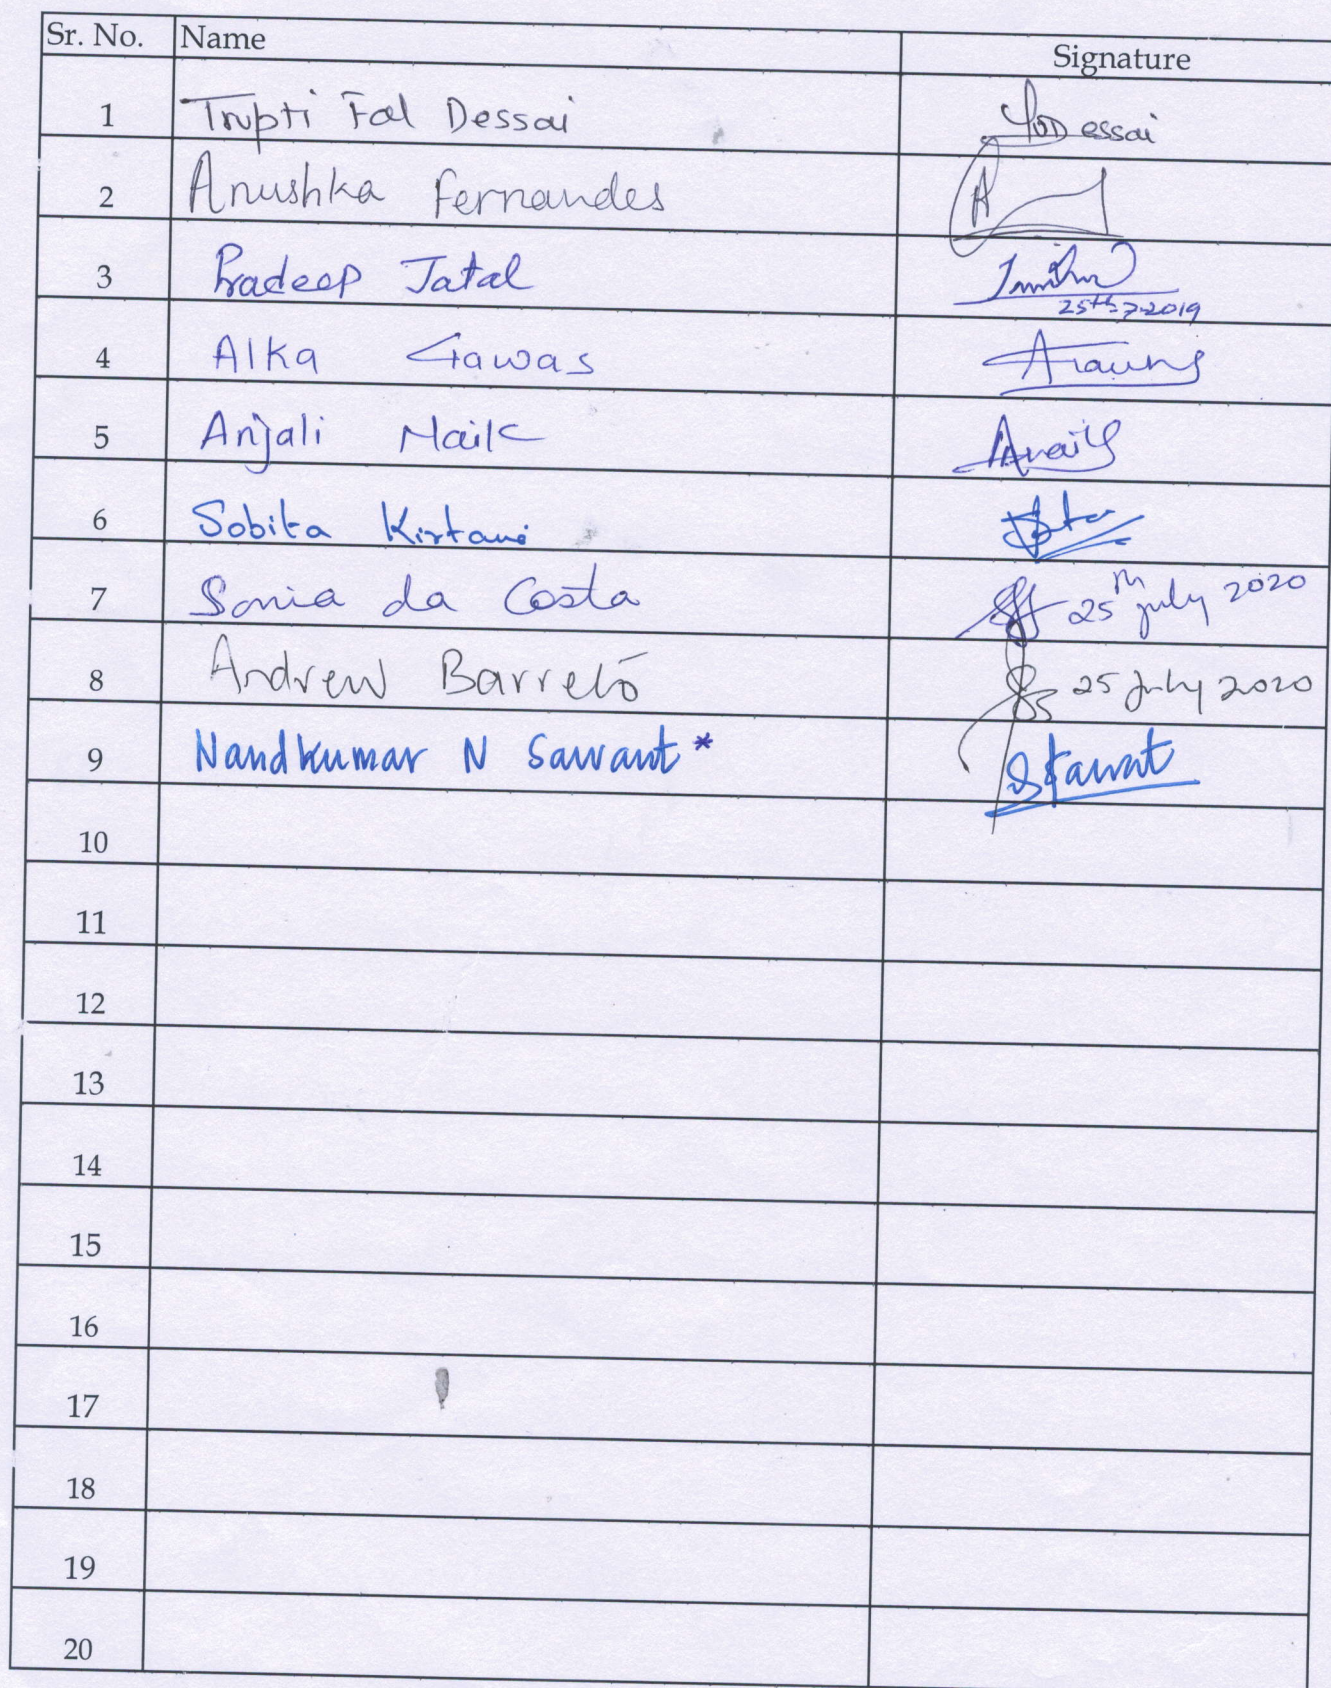 Sr. No. Name Signature
1 Trupti Fal Dessai Dessai
2 Anushka Fernandes A
3 Pradeep Tatal
25th-7-2019
4 Alka Gawas
5 Anjali Naik Anaik
6 Sobita Kirtani
7 Sonia da Costa 25th july 2020
8 Andrew Barreto 25 July 2020
9 Nandkumar N Sawant*
10
11
12
13
14
15
16
17
18
19
20